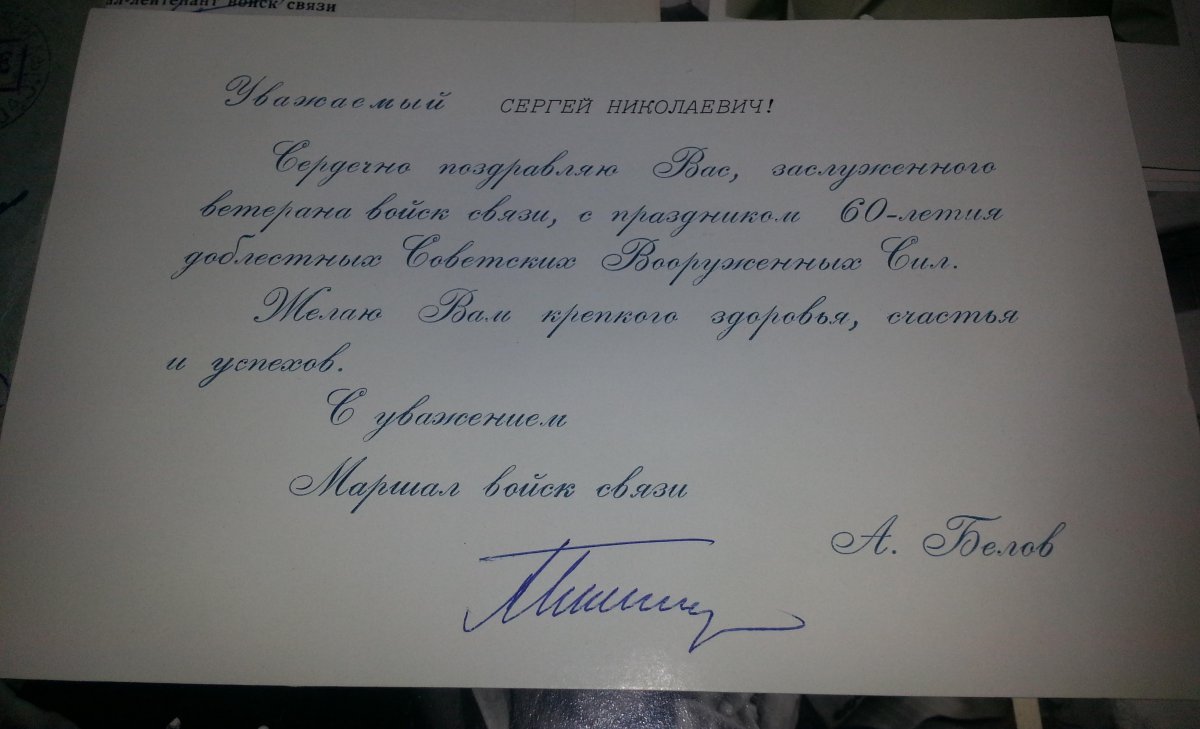 войск связи
Уважаемый СЕРГЕЙ НИКОЛАЕВИЧ!
Сердечно поздравляю Вас, заслуженного
ветерана войск связи, с праздником 60-летия
доблестных Советских Вооруженных Сил.
Желаю Вам крепкого здоровья, счастья
и успехов.
С уважением
Маршал войск связи
А. Белов